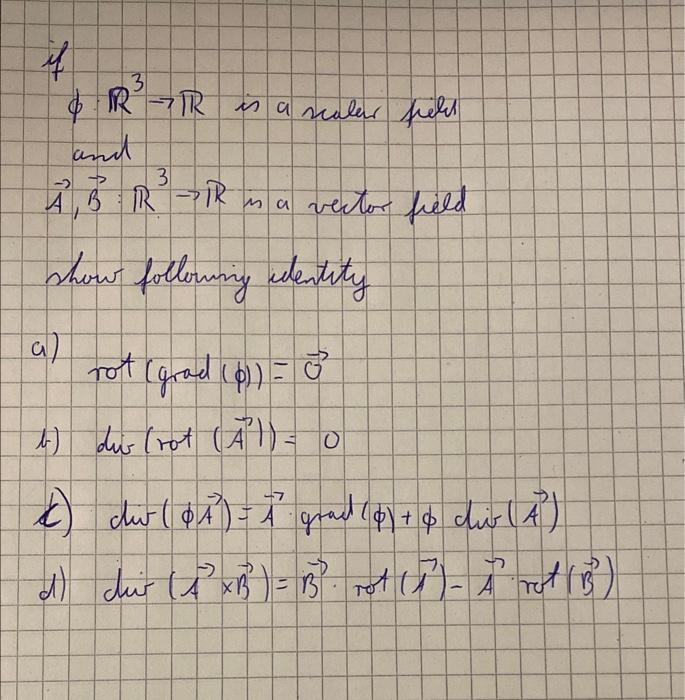 if
ϕ : ℝ³ → ℝ is a scalar field
and
A⃗, B⃗ : ℝ³ → ℝ is a vector field
show following identity
a) rot (grad (ϕ)) = 0⃗
b) div (rot (A⃗)) = 0
c) div (ϕA⃗) = A⃗ · grad (ϕ) + ϕ div (A⃗)
d) div (A⃗ × B⃗) = B⃗ · rot (A⃗) - A⃗ · rot (B⃗)